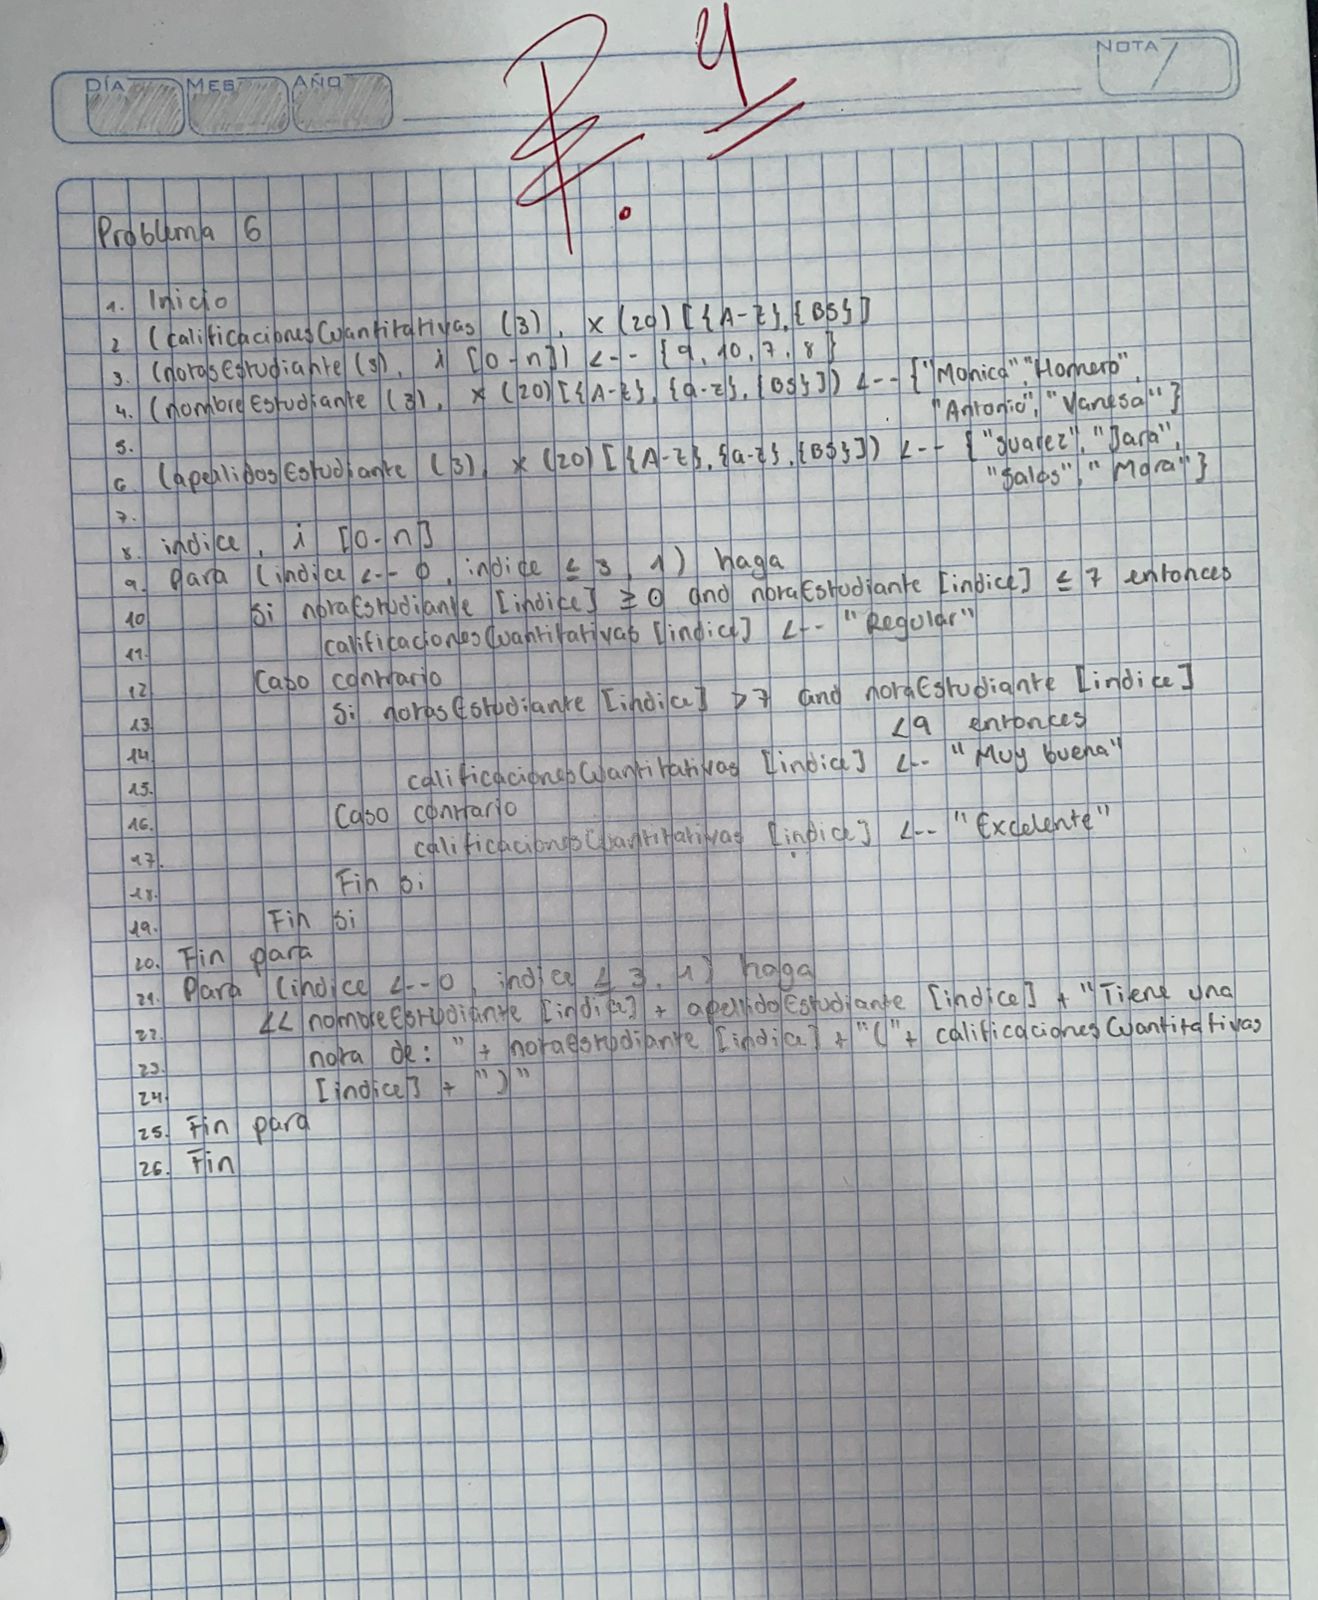 DÍA MES AÑO
NOTA
4
Problema 6
1. Inicio
2 (calificacionesCuantitativas (3), x (20) [{A-z},{BS}]
3. (notasEstudiante (3), i [0-n]) <-- {9, 10, 7, 8}
4. (nombreEstudiante (3), x (20) [{A-z}, {a-z}, {BS}]) <-- {"Monica", "Homero",
5. "Antonio", "Vanesa"}
6 (apellidosEstudiante (3), x (20) [{A-z}, {a-z}, {BS}]) <-- {"Juarez", "Jara",
7. "Salas", "Mora"}
8. indice, i [0-n]
9. para (indice <-- 0, indice ≤ 3, 1) haga
10 Si notaEstudiante [indice] ≥ 0 and notaEstudiante [indice] ≤ 7 entonces
11. calificacionesCuantitativas [indice] <-- "Regular"
12 Caso contrario
13. Si notasEstudiante [indice] >7 and notaEstudiante [indice]
14. <9 entonces
15. calificacionesCuantitativas [indice] <-- "Muy buena"
16. Caso contrario
17. calificacionesCuantitativas [indice] <-- "Excelente"
18. Fin si
19. Fin si
20. Fin para
21. Para (indice <--0, indice ≤ 3, 1) haga
22. << nombreEstudiante [indice] + apellidoEstudiante [indice] + "Tiene una
23. nota de: " + notaestudiante [indice] + "(" + calificacionesCuantitativas
24. [indice] + ")"
25. Fin para
26. Fin